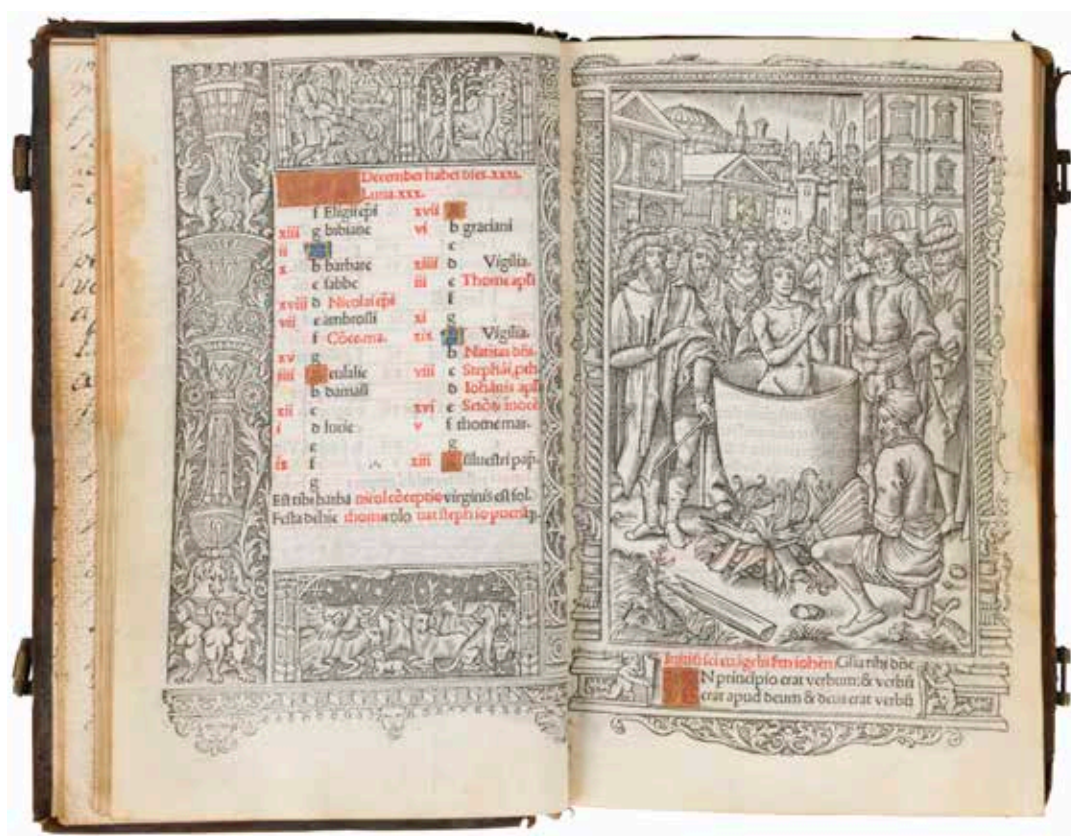 December habet dies .xxxi.
Luna .xxx.
f Eligii epi
xiii g bibiane
ii
x b barbare
c sabbe
xviii d Nicolai epi
vii e ambrosii
f Cōce.ma.
xv g
iiii eulalie
b damasi
xii c
i d lucie
e
ix f
g
xvii
vi b graciani
c
xiiii d Vigilia.
iii e Thome apli
f
xi g
xix Vigilia.
b Natiuitas dñi.
viii c Stephāi.
d Iohānis apli
xvi e Sctōꝝ inocē
v f thome mar.
g
xiii siluestri pap.
Est tibi barba nicol cōceptio virginis est sol.
Festa dehinc thome volo nat steph io
Initiū sci euāgelii scd'm iohēm. Glia tibi dñe
IN principio erat verbum: & verbū
erat apud deum & deus erat verbū